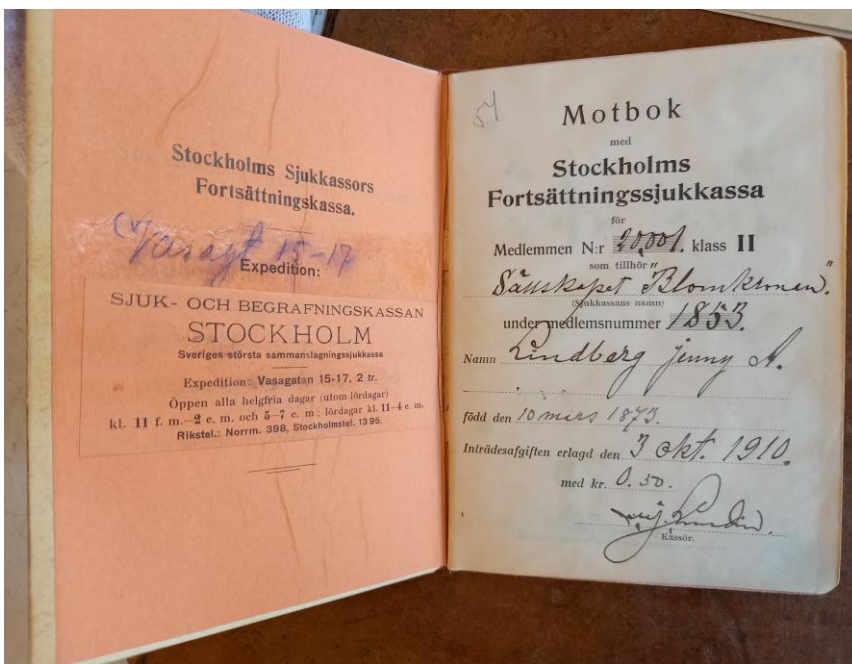 Stockholms Sjukkassors
Fortsättningskassa.
Vasagt 15-17
Expedition:
SJUK- OCH BEGRAFNINGSKASSAN
STOCKHOLM
Sveriges största sammanslagningssjukkassa
Expedition: Vasagatan 15-17, 2 tr.
Öppen alla helgfria dagar (utom lördagar)
kl. 11 f. m.–2 e. m. och 5–7 e. m.; lördagar kl. 11–4 e. m.
Rikstel.: Norrm. 398, Stockholmstel. 13 95.
54
Motbok
med
Stockholms
Fortsättningssjukkassa
för
Medlemmen N:r 20,001. klass II
som tillhör
Sänskapet "Blomkman".
(Sjukkassans namn)
under medlemsnummer 1853.
Namn Lindberg Jenny A.
född den 10 mars 1873.
Inträdesafgiften erlagd den 3 okt. 1910.
med kr. 0.50.
Kassör.